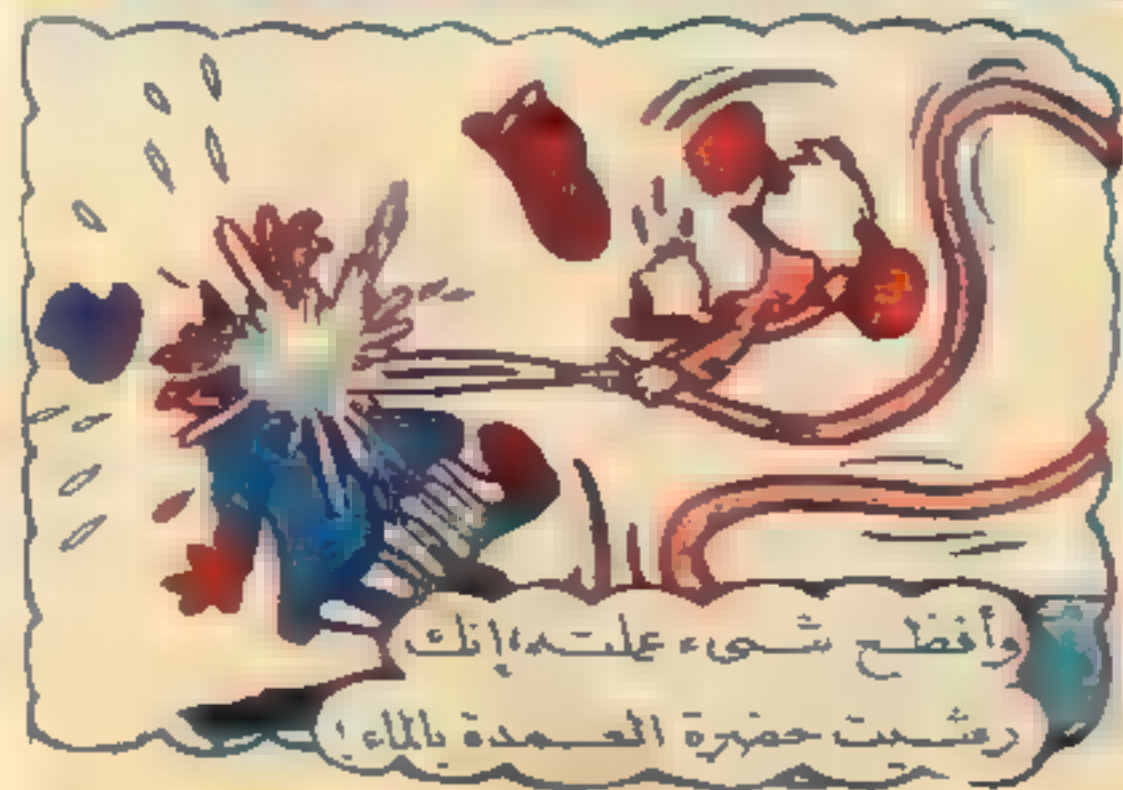 وأفظع شىء عملته، إنك
رشيت حضرة العمدة بالماء!